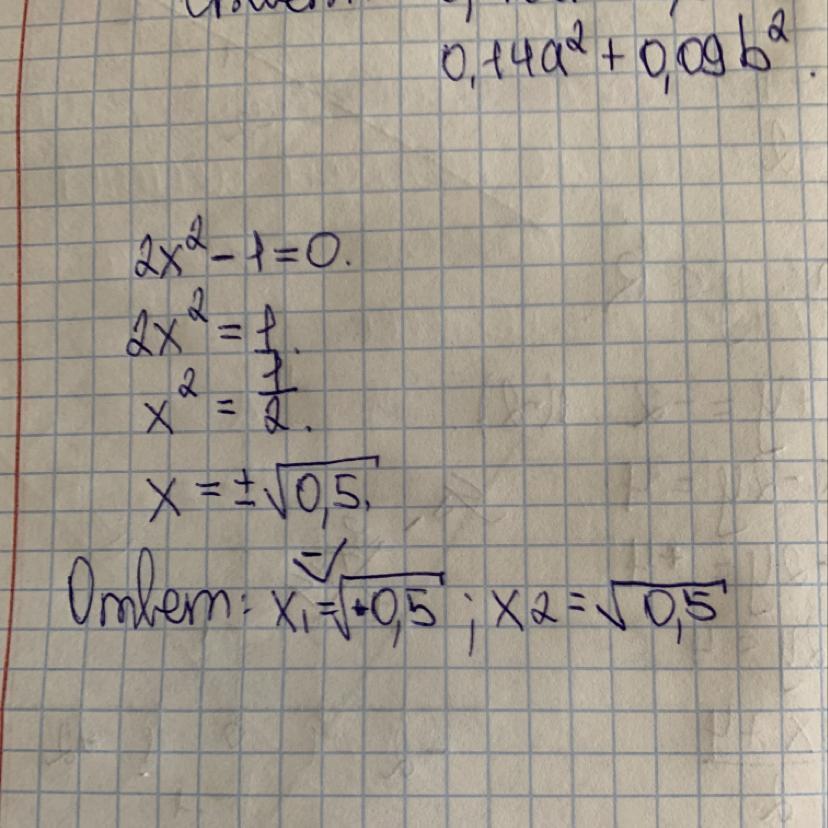 0,14a² + 0,09b².
2x² - 1 = 0.
2x² = 1.
x² = 1/2.
x = ±√0,5.
Ответ: x₁ = √-0,5 ; x2 = √0,5